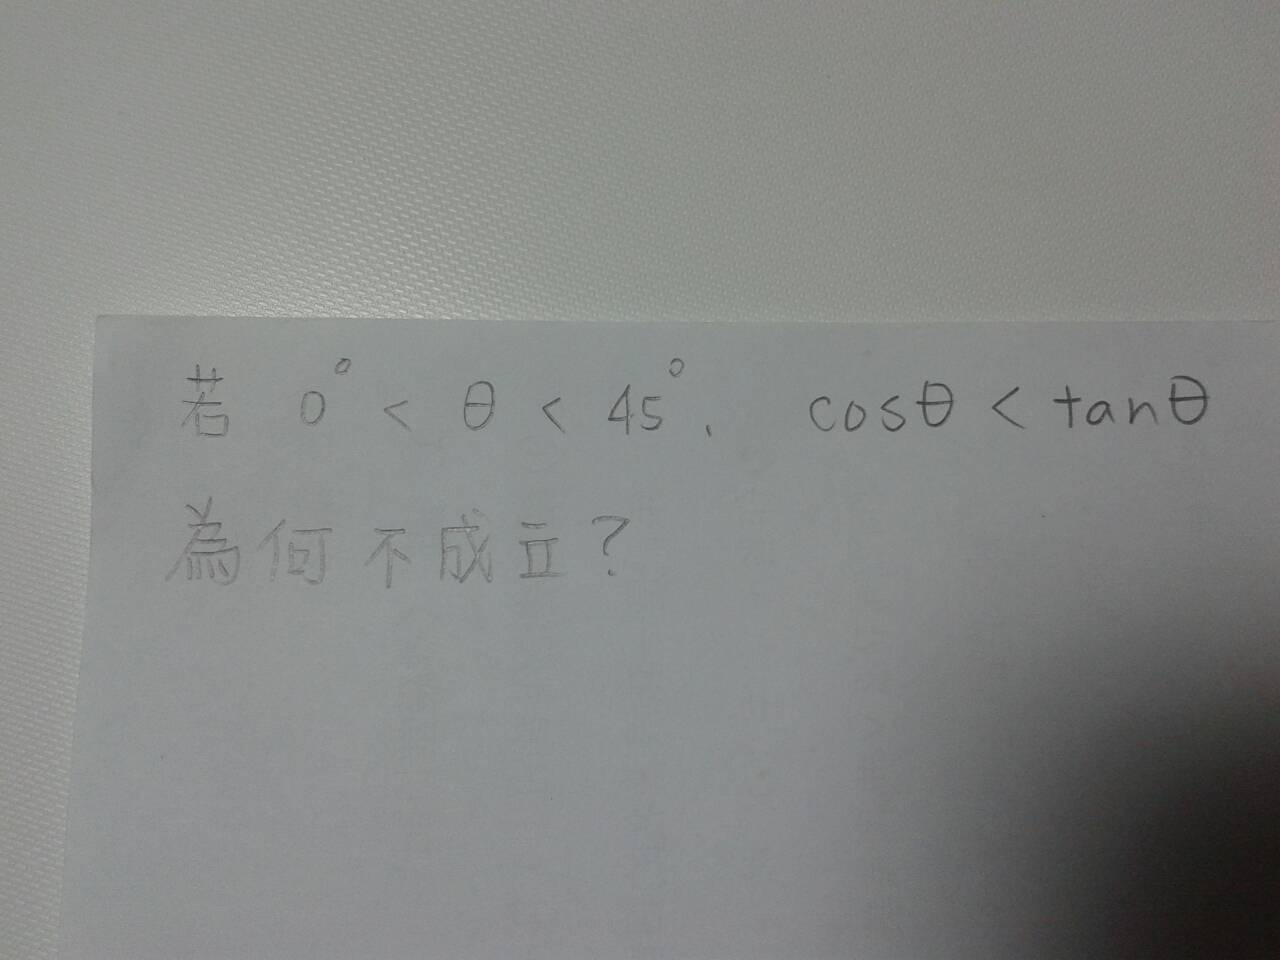 若 0° < θ < 45°、 cosθ < tanθ
為何不成立?